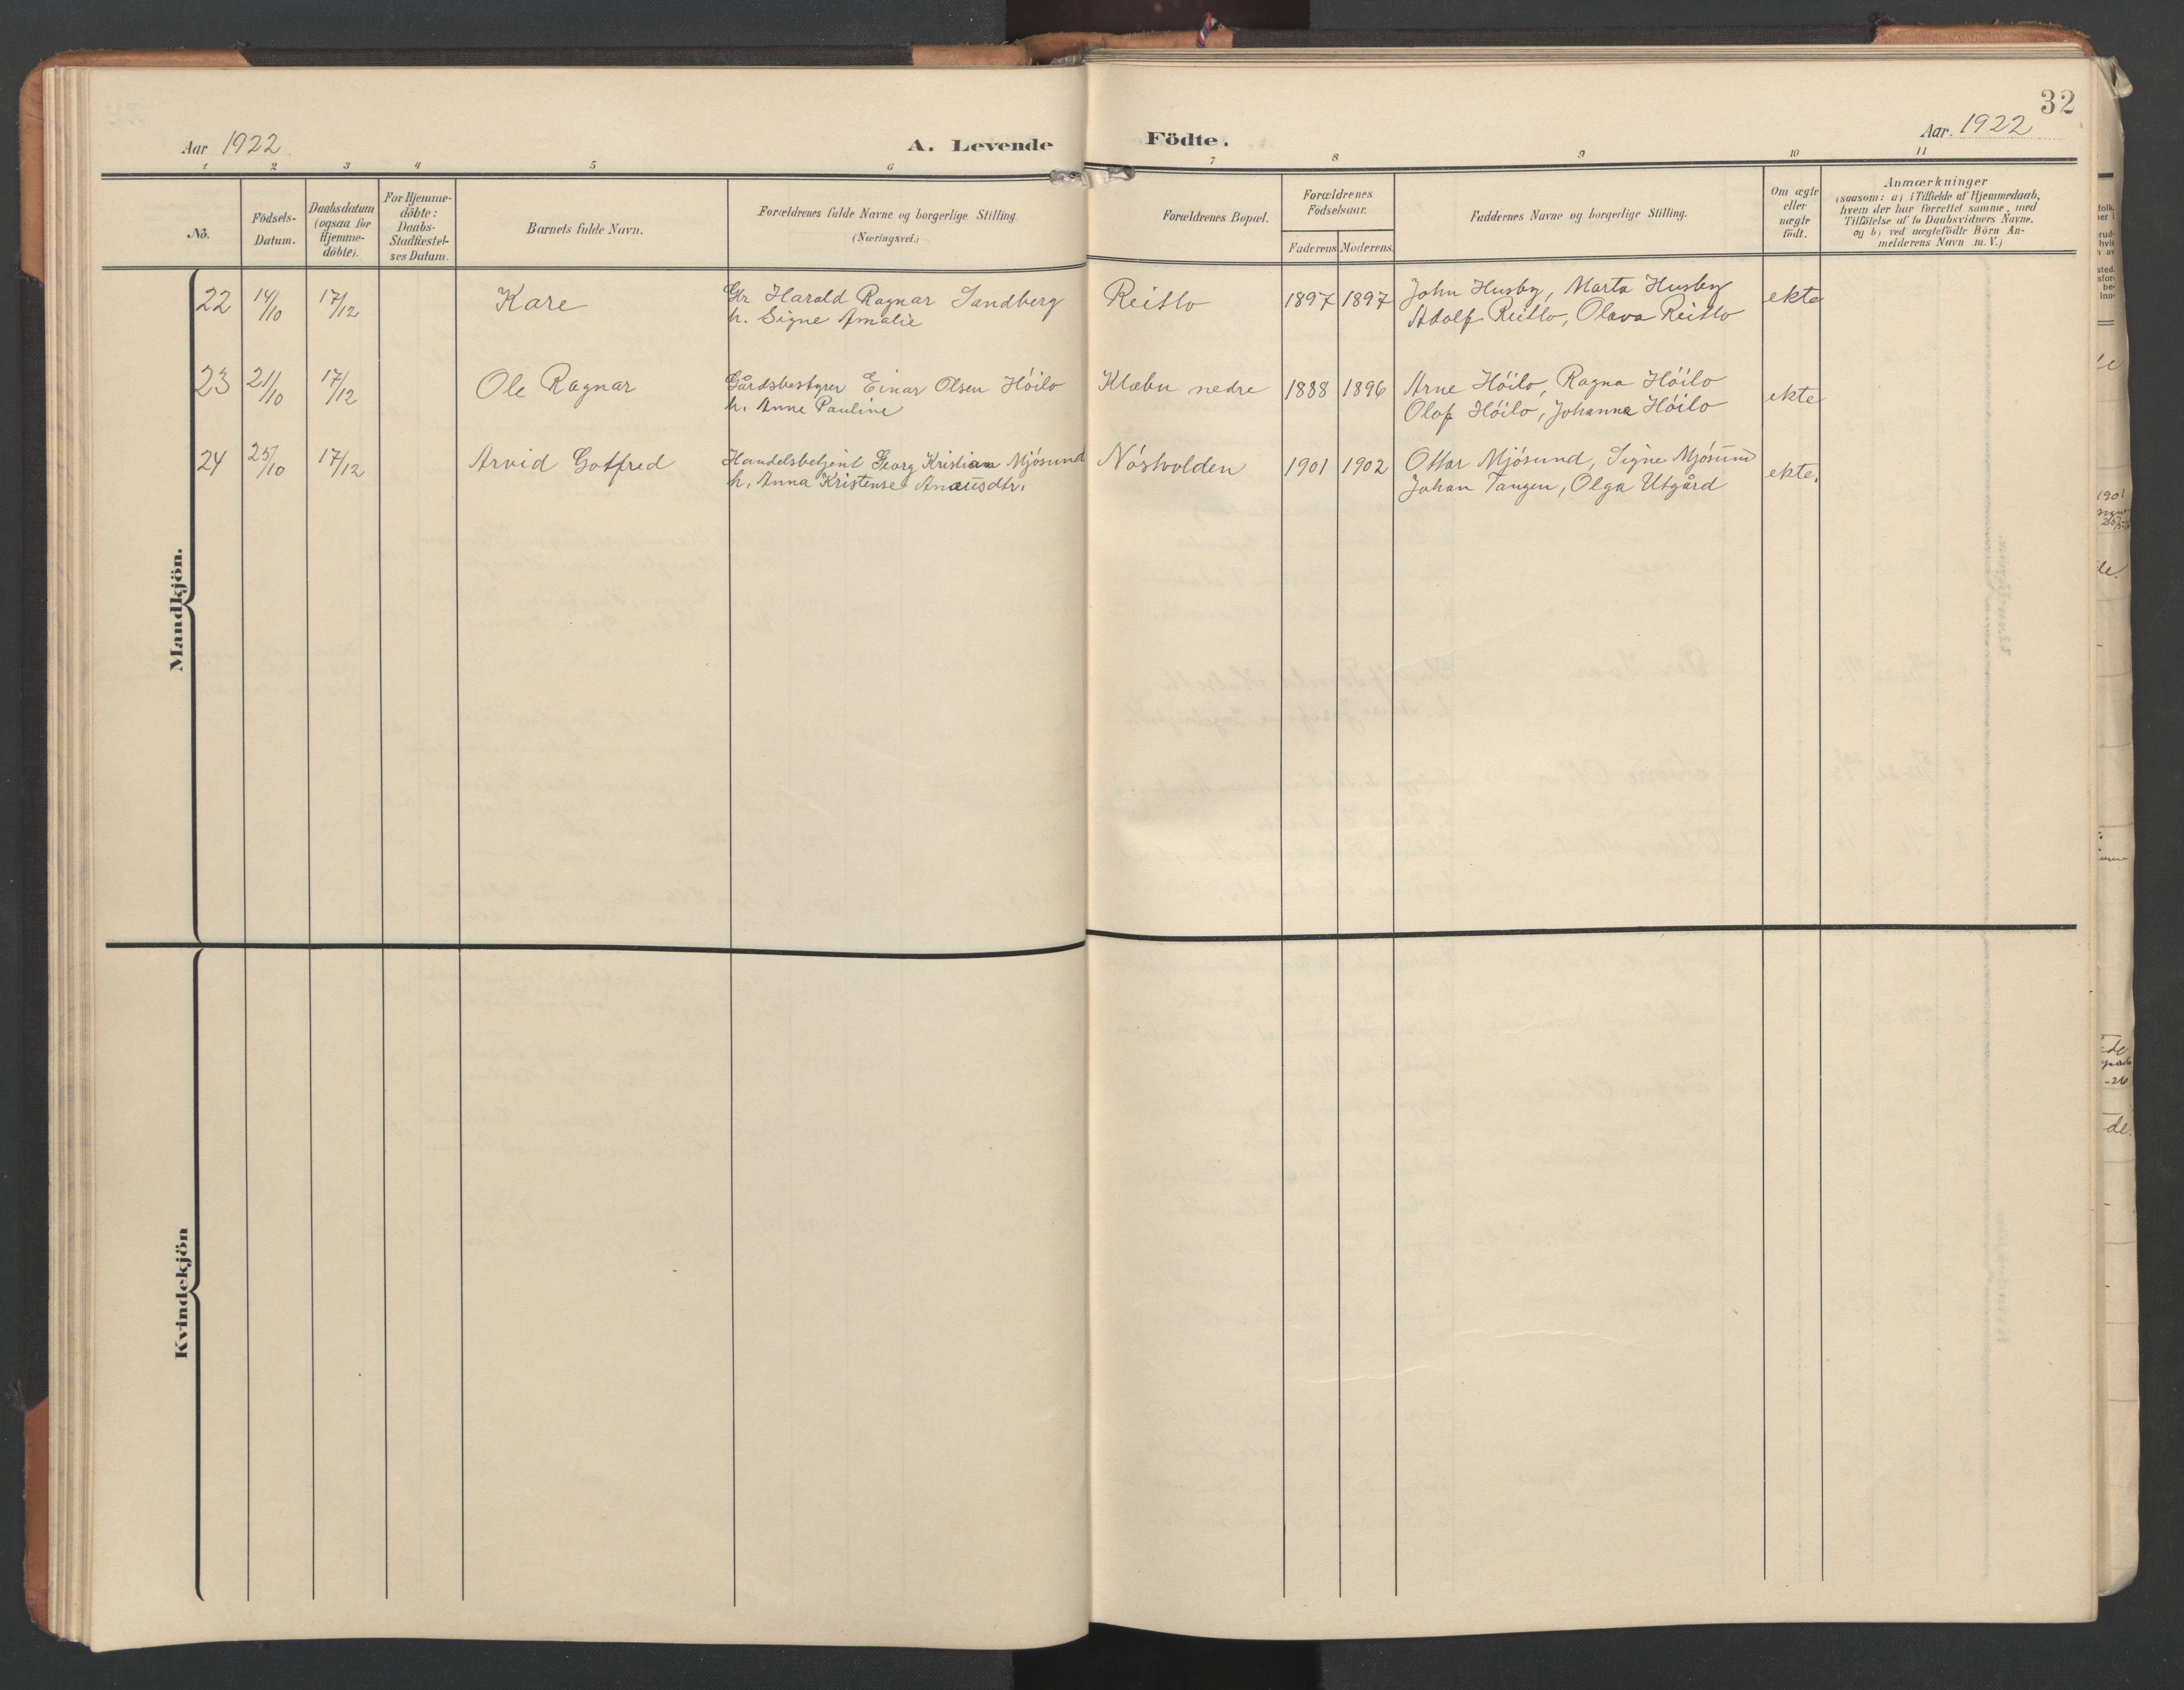 32
Aar 1922
A. Levende Födte.
Aar. 1922
1 2 3 4 5 6 7 8 9 10 11
No.
Födsels-
Datum.
Daabsdatum
(ogsaa for
Hjemme-
döbte).
For Hjemme-
döbte:
Daabs-
Stadfæstel-
ses Datum.
Barnets fulde Navn.
Forældrenes fulde Navne og borgerlige Stilling.
(Næringsvei.)
Forældrenes Bopæl.
Forældrenes
Födselsaar.
Faderens Moderens.
Faddernes Navne og borgerlige Stilling.
Om ægte
eller
uægte
födt.
Anmærkninger
(saasom: a) i Tilfælde af Hjemmedaab,
hvem der har forrettet samme, med
Tilföielse af to Daabsvidners Navne,
og b) ved uægtefödte Börn An-
melderens Navn m. V.)
Mandkjön.
22 14/10 17/12 Kare Gbr Harald Ragnar Sandberg Reitlo 1897 1897 John Husby, Marta Husby ekte
h. Signe Amalie Adolf Reitlo, Olava Reitlo
23 21/10 17/12 Ole Ragnar Gårdsbestyrer Einar Olsen Höilo Klæbu nedre 1888 1896 Arne Höilo, Ragna Höilo ekte
h. Anne Pauline Olaf Höilo, Johanna Höilo
24 25/10 17/12 Arvid Gotfred Handelsbetjent Georg Kristian Mjösund Nóstvolden 1901 1902 Ottar Mjösund, Signe Mjösund ekte.
h. Anna Kristense Johan Tangen, Olga Utgård
Kvindekjön